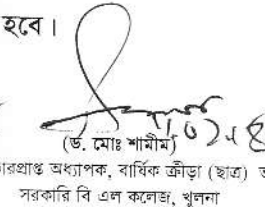 হবে।
(ড. মোঃ শামীম)
রপ্রাপ্ত অধ্যাপক, বার্ষিক ক্রীড়া (ছাত্র)
সরকারি বি এল কলেজ, খুলনা